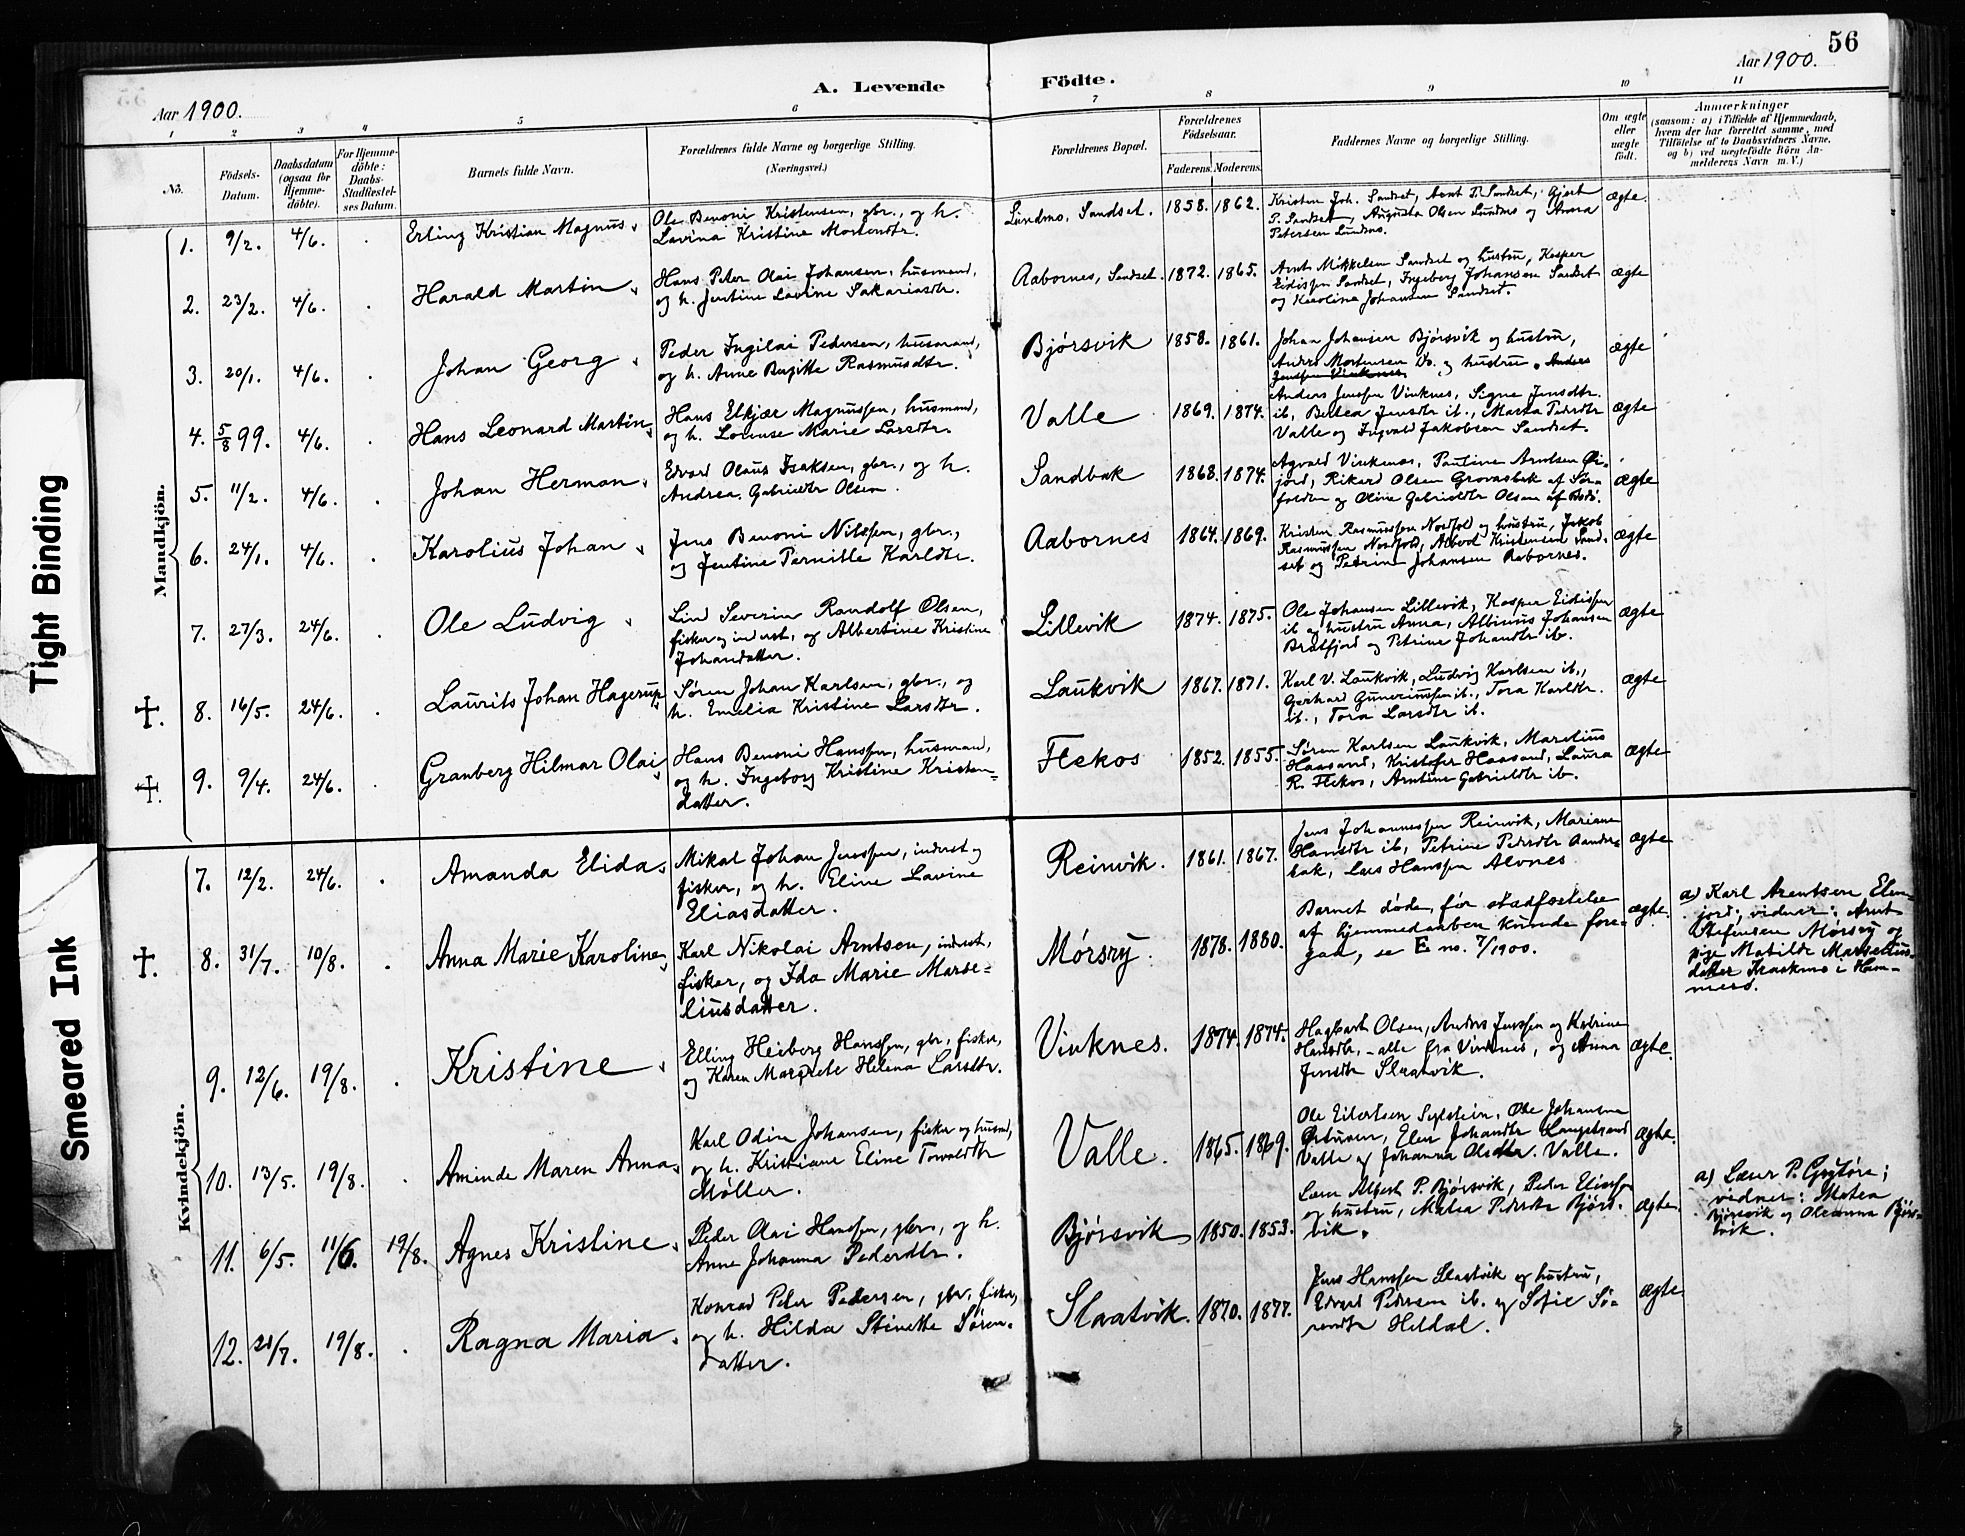 56
Aar 1900.
A. Levende Födte.
Aar 1900.
1 2 3 4 5 6 7 8 9 10 11
No.
Födsels-Datum.
Daabsdatum (ogsaa for Hjemme-döbte).
For Hjemme-döbte: Daabs-Stadfæstel-ses Datum.
Barnets fulde Navn.
Forældrenes fulde Navne og borgerlige Stilling.
(Næringsvei.)
Forældrenes Bopæl.
Forældrenes Födselsaar.
Faderens. Moderens.
Faddernes Navne og borgerlige Stilling.
Om ægte eller uægte født.
Anmærkninger
(saasom: a) i Tilfælde af Hjemmedaab,
hvem der har forrettet samme, med
Tilføielse af to Daabsvidners Navne,
og b) ved uægtefödte Börn An-
melderens Navn m. V.)
Mandkjön.
1. 9/2. 4/6. Erling Kristian Magnus.
Ole Benoni Kristensen, gbr., og h.
Lavina Kristine Mortensdtr.
Lundmo, Sandset. 1858. 1862.
Kristen Joh. Sandset, Arnt P. Sandset, Gjert
P. Sandset, Augusta Olsen Lundmo og Anna
Petersen Lundmo.
ægte.
2. 23/2. 4/6. Harald Martin.
Hans Peter Olai Johansen, husmand,
og h. Jentine Lavine Sakariasdtr.
Aabornes, Sandset. 1872. 1865.
Arnt Mikkelsen Sandset og hustru, Kasper
Eidissen Sandset, Ingeborg Johansen Sandset
og Karoline Johansen Sandset.
ægte
3. 20/1. 4/6. Johan Georg.
Peder Ingilai Pedersen, husmand,
og h. Anne Birgitte Rasmusdtr.
Bjørsvik 1858. 1861.
Johan Johansen Bjørsvik og hustru,
Anders Mortensen Do. og hustru. Anders
Jenssen Vinknes
ægte
4. 5/8 99. 4/6. Hans Leonard Martin.
Hans Elkjær Magnussen, husmand,
og h. Lorense Marie Larsdtr.
Valle 1869. 1874.
Anders Jenssen Vinknes, Signe Jensdtr.
ib., Betsea Jensdtr ib., Marta Pedersdtr
Valle og Ingvald Jakobsen Sandset.
ægte
5. 11/2. 4/6. Johan Herman.
Edvard Olaus Isaksen, gbr., og h.
Andrea Gabrieldtr Olsen.
Sandbak 1868. 1874.
Agvald Vinkenes, Pauline Arntsen Øi-
jord, Rikard Olsen Grovasbak af Sør-
folden og Oline Gabrieldtr Olsen af Bodø.
ægte
6. 24/1. 4/6. Karolius Johan.
Jens Benoni Nilssen, gbr.,
og Jentine Pernille Karldtr.
Aabornes 1864. 1869.
Kristen Rasmussen Nordfold og hustru, Jakob
Rasmussen Nordfold, Albert Kristensen Sand-
set og Petrine Johansen Aabornes.
ægte
7. 27/3. 24/6. Ole Ludvig.
Lind Severin Randolf Olsen,
fisker og inderst, og Albertine Kristine
Johandatter.
Lillevik 1874. 1875.
Ole Johansen Lillevik, Kasper Eidissen
ib og hustru Anna, Albinus Johansen
Bratfjord og Petrine Johandtr ib.
ægte
✝. 8. 16/5. 24/6. Laurits Johan Hagerup.
Søren Johan Karlsen, gbr., og
h. Emelia Kristine Larsdtr.
Laukvik 1867. 1871.
Karl V. Laukvik, Ludvig Karlsen ib.,
Gerhard Gunerinssen ib., Tora Karldtr.
ib., Tora Larsdtr ib.
ægte
✝. 9. 9/4. 24/6. Granberg Hilmar Olai.
Hans Benoni Hanssen, husmand,
og h. Ingeborg Kristine Kristen-
datter.
Flekos 1852. 1855.
Søren Karlsen Laukvik, Marelius
Haasand, Kristofer Haasand, Laura
R. Flekos, Arntine Gabrieldtr ib.
ægte
Kvindekjön.
7. 12/2. 24/6. Amanda Elida.
Mikal Johan Jenssen, inderst og
fisker, og h. Eline Lavine
Eliasdatter.
Reinvik. 1861. 1867.
Jens Johannessen Reinvik, Mariane
Hansdtr ib, Petrine Pedersdtr Aanders-
bak, Lars Hanssen Alvnes
ægte
✝. 8. 31/7. 10/8. Anna Marie Karoline.
Karl Nikolai Arntsen, inderst,
fisker, og Ida Marie Marse-
liusdatter.
Mørsry. 1878. 1880.
Barnet døde, før stadfæstelse
af hjemmedaaben kunde fore-
gaa, se E no. 7/1900.
ægte.
a) Karl Arentsen Elvn-
jord; vidner: Arnt
Steffensen Mørsry og
pige Matilde Marselius-
datter Kraakmo i Ham-
merø.
9. 12/6. 19/8. Kristine.
Elling Heiberg Hanssen, gbr, fisker,
og Karen Margrete Helena Larsdtr.
Vinknes. 1874. 1874.
Hagbart Olsen, Anders Jenssen og Katrine
Hansdtr, - alle fra Vinknes, og Anna
Jensdtr Slaatvik.
ægte.
10. 13/5. 19/8. Aminde Maren Anna.
Karl Odin Johansen, fisker og husmd,
og h. Kristiane Eline Torvaldtr
Møller.
Valle. 1865. 1869.
Ole Eilertsen Sylstein, Ole Johansen
Valle og Johanna Olsdtr. Valle.
ægte.
11. 6/5. 11/6. 19/8. Agnes Kristine.
Peder Olai Hanssen, gbr., og h.
Anne Johanna Pedersdtr.
Bjørsvik 1850. 1853.
Laur Albert P. Bjørsvik, Peder Eliassen
og hustru, Matea Pedersdtr Bjørs-
vik.
ægte.
a) Laur P. Grytøre;
vidner: Matea
Bjørsvik og Oleanna Bjørs-
vik.
12. 21/7. 19/8. Ragna Maria.
Konrad Peter Pedersen, gbr. fisker,
og h. Hilda Stinette Søren-
datter.
Slaatvik. 1870. 1877.
Jens Hanssen Slaatvik og hustru,
Edvard Pedersen ib. og Sofie Sø-
rendtr Heldal.
ægte
Tight Binding
Smeared Ink